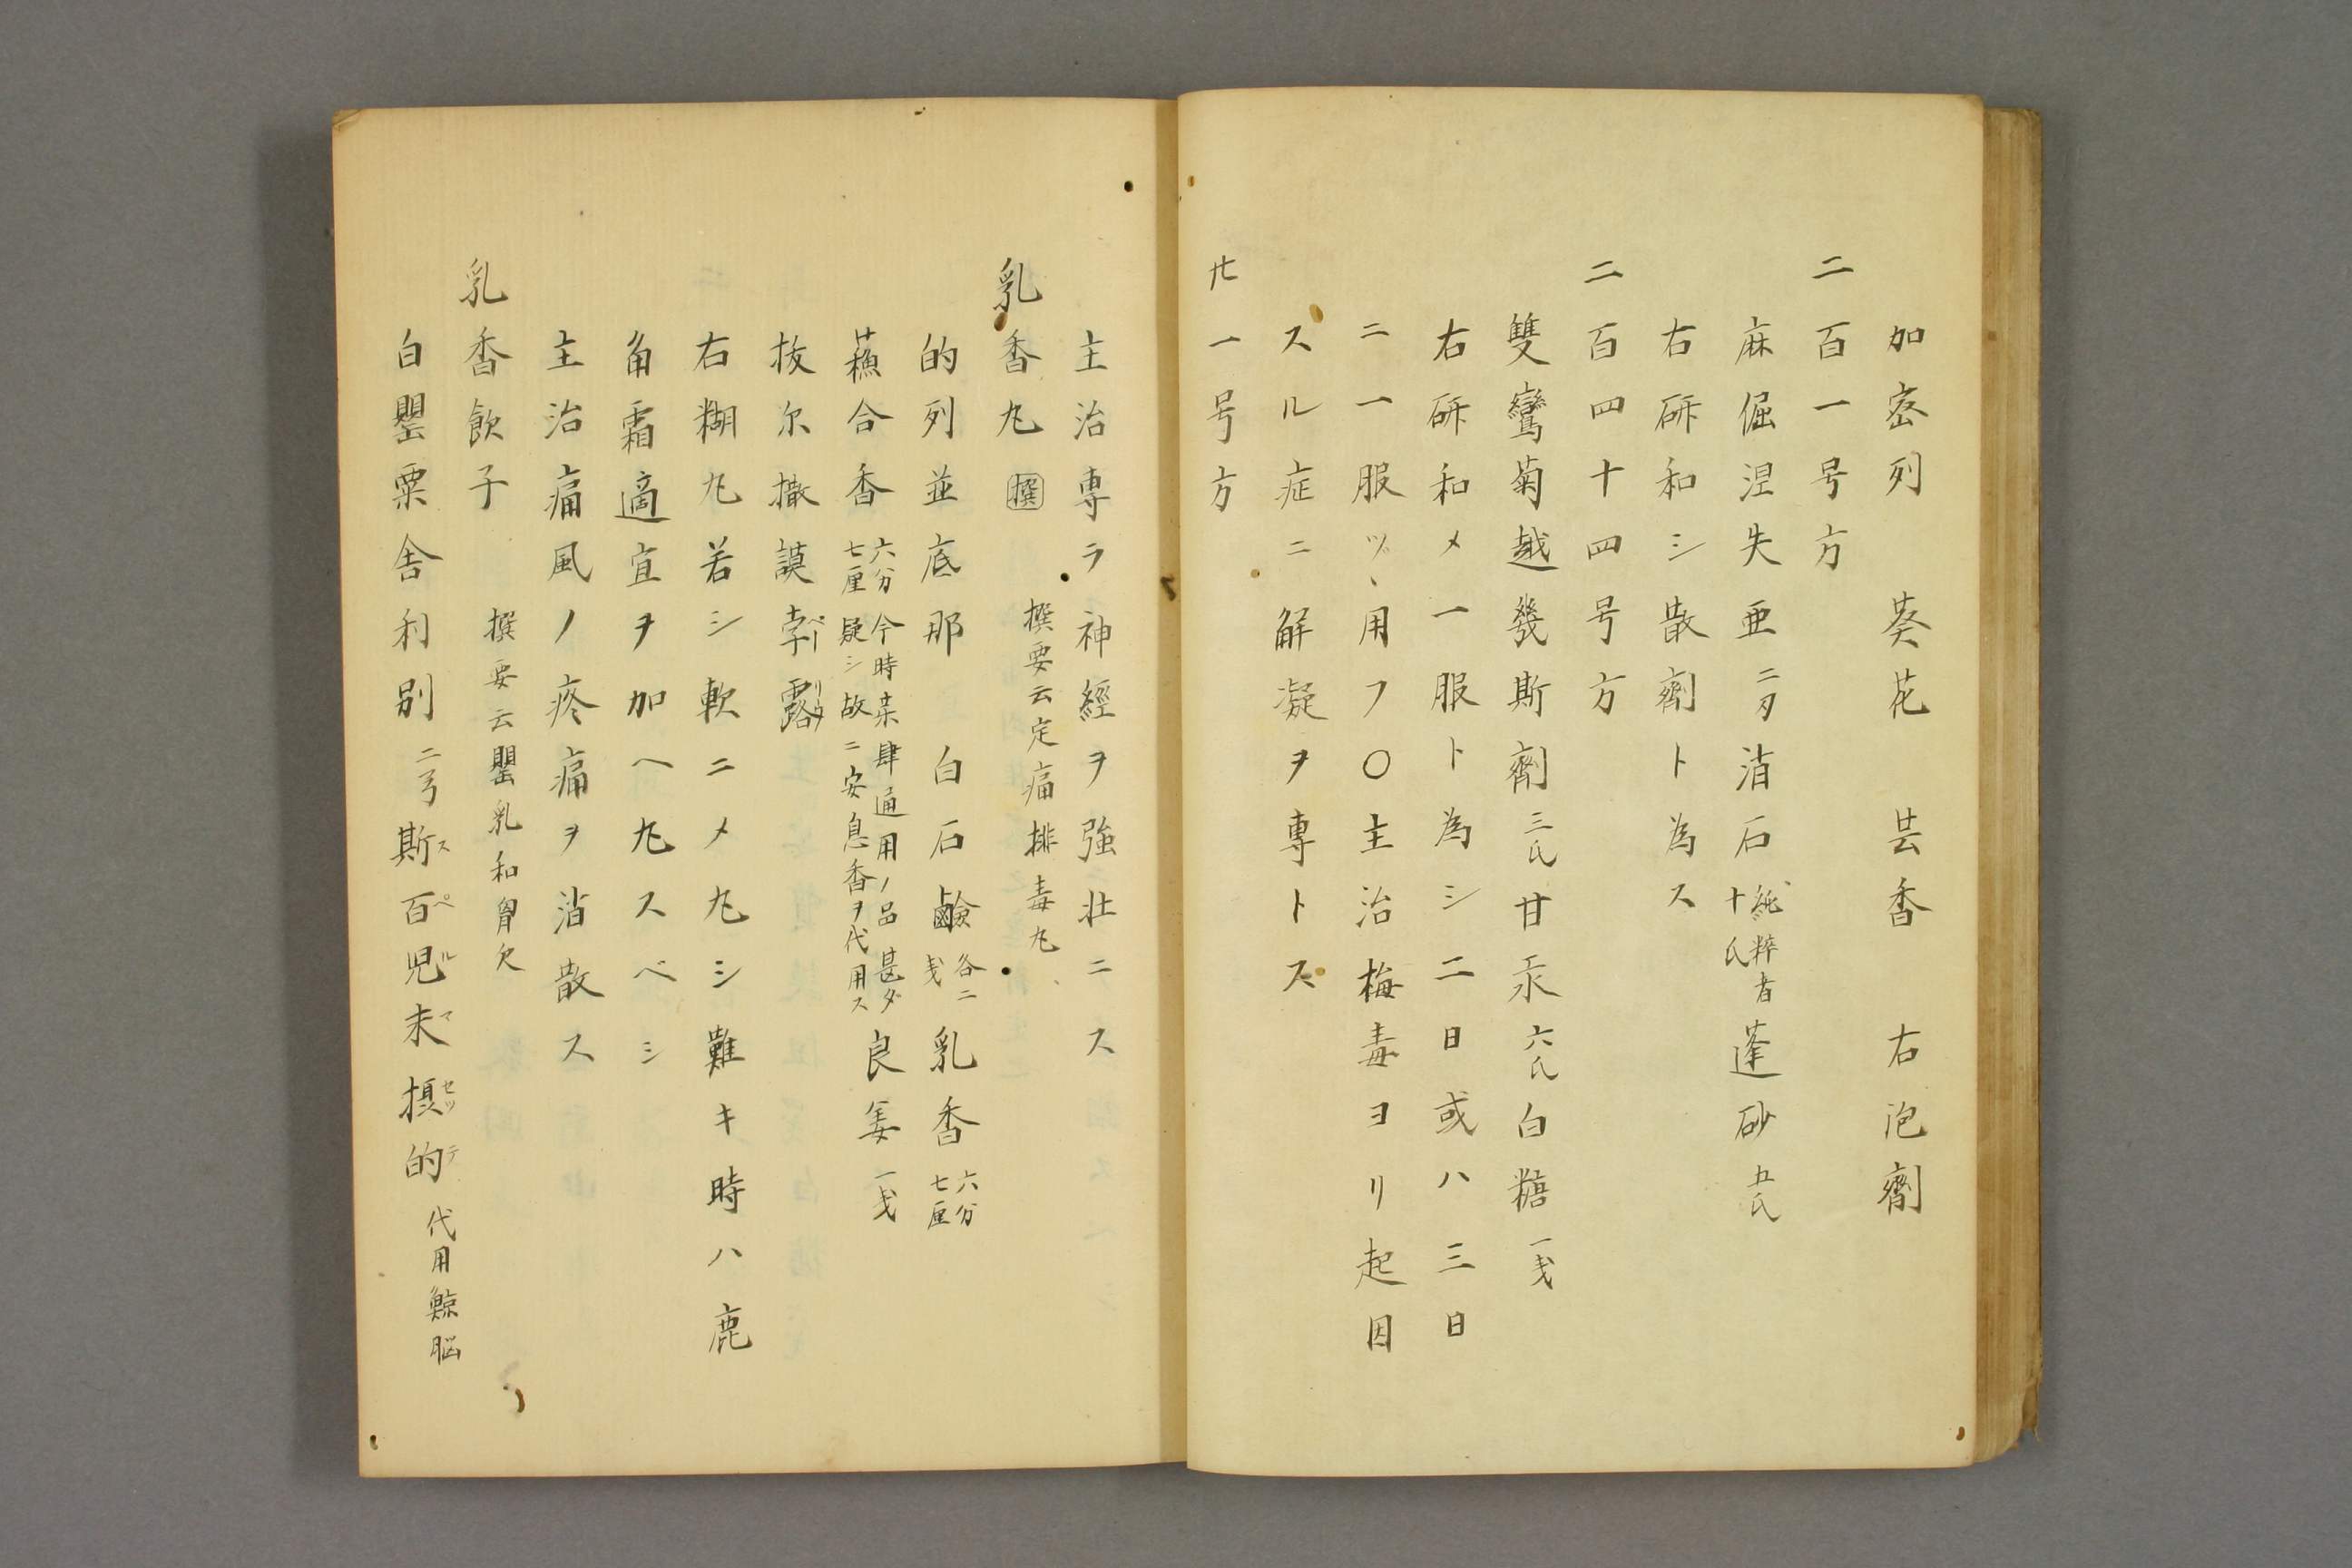 加密列　葵花　芸香　右泡劑
二百一号方
麻倔涅失亜二匁消石純粋者十氏蓬砂五氏
右研和シ散劑ト為ス
二百四十四号方
雙鸞菊越幾斯劑三氏甘汞六氏白糖一戔
右研和メ一服ト為シ二日或ハ三日
ニ一服ヅヽ用フ〇主治梅毒ヨリ起因
スル症ニ解凝ヲ専トス
廿一号方
主治専ラ神經ヲ強壮ニス
乳香丸　撰　撰要云定痛排毒丸
的列並底那　白石鹸各二戔乳香六分七厘
蘓合香六分七厘今時薬肆通用ノ品甚ダ疑シ故ニ安息香ヲ代用ス良姜一戔
抜尓撒謨孛ベー露リウ
右糊丸若シ軟ニメ丸シ難キ時ハ鹿
角霜適宜ヲ加ヘ丸スベシ
主治痛風ノ疼痛ヲ消散ス
乳香飲子　撰要云罌乳和胃欠
白罌粟舎利別二弓斯ス百ペ児ル末マ摂セツ的テ代用鯨脳